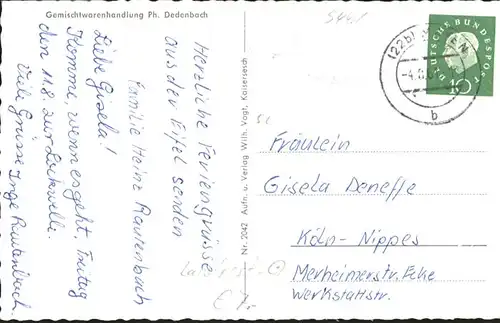 Gemischtwarenhandlung Ph. Dedenbach
Herzliche Feriengrüsse
aus der Eifel senden
Familie Heinz Rautenbach
Liebe Gisela!
Komme, wenn es geht, Freitag
den 11.8. zur
Viele Grüsse Inge Rautenbach.
Nr. 2042 Aufn. u. Verlag Wilh. Vogt, Kaisersesch
DEUTSCHE BUNDESPOST
10
(22b)
b
Fräulein
Gisela Deneffe
Köln-Nippes
Merheimerstr. Ecke
Werkstattstr.